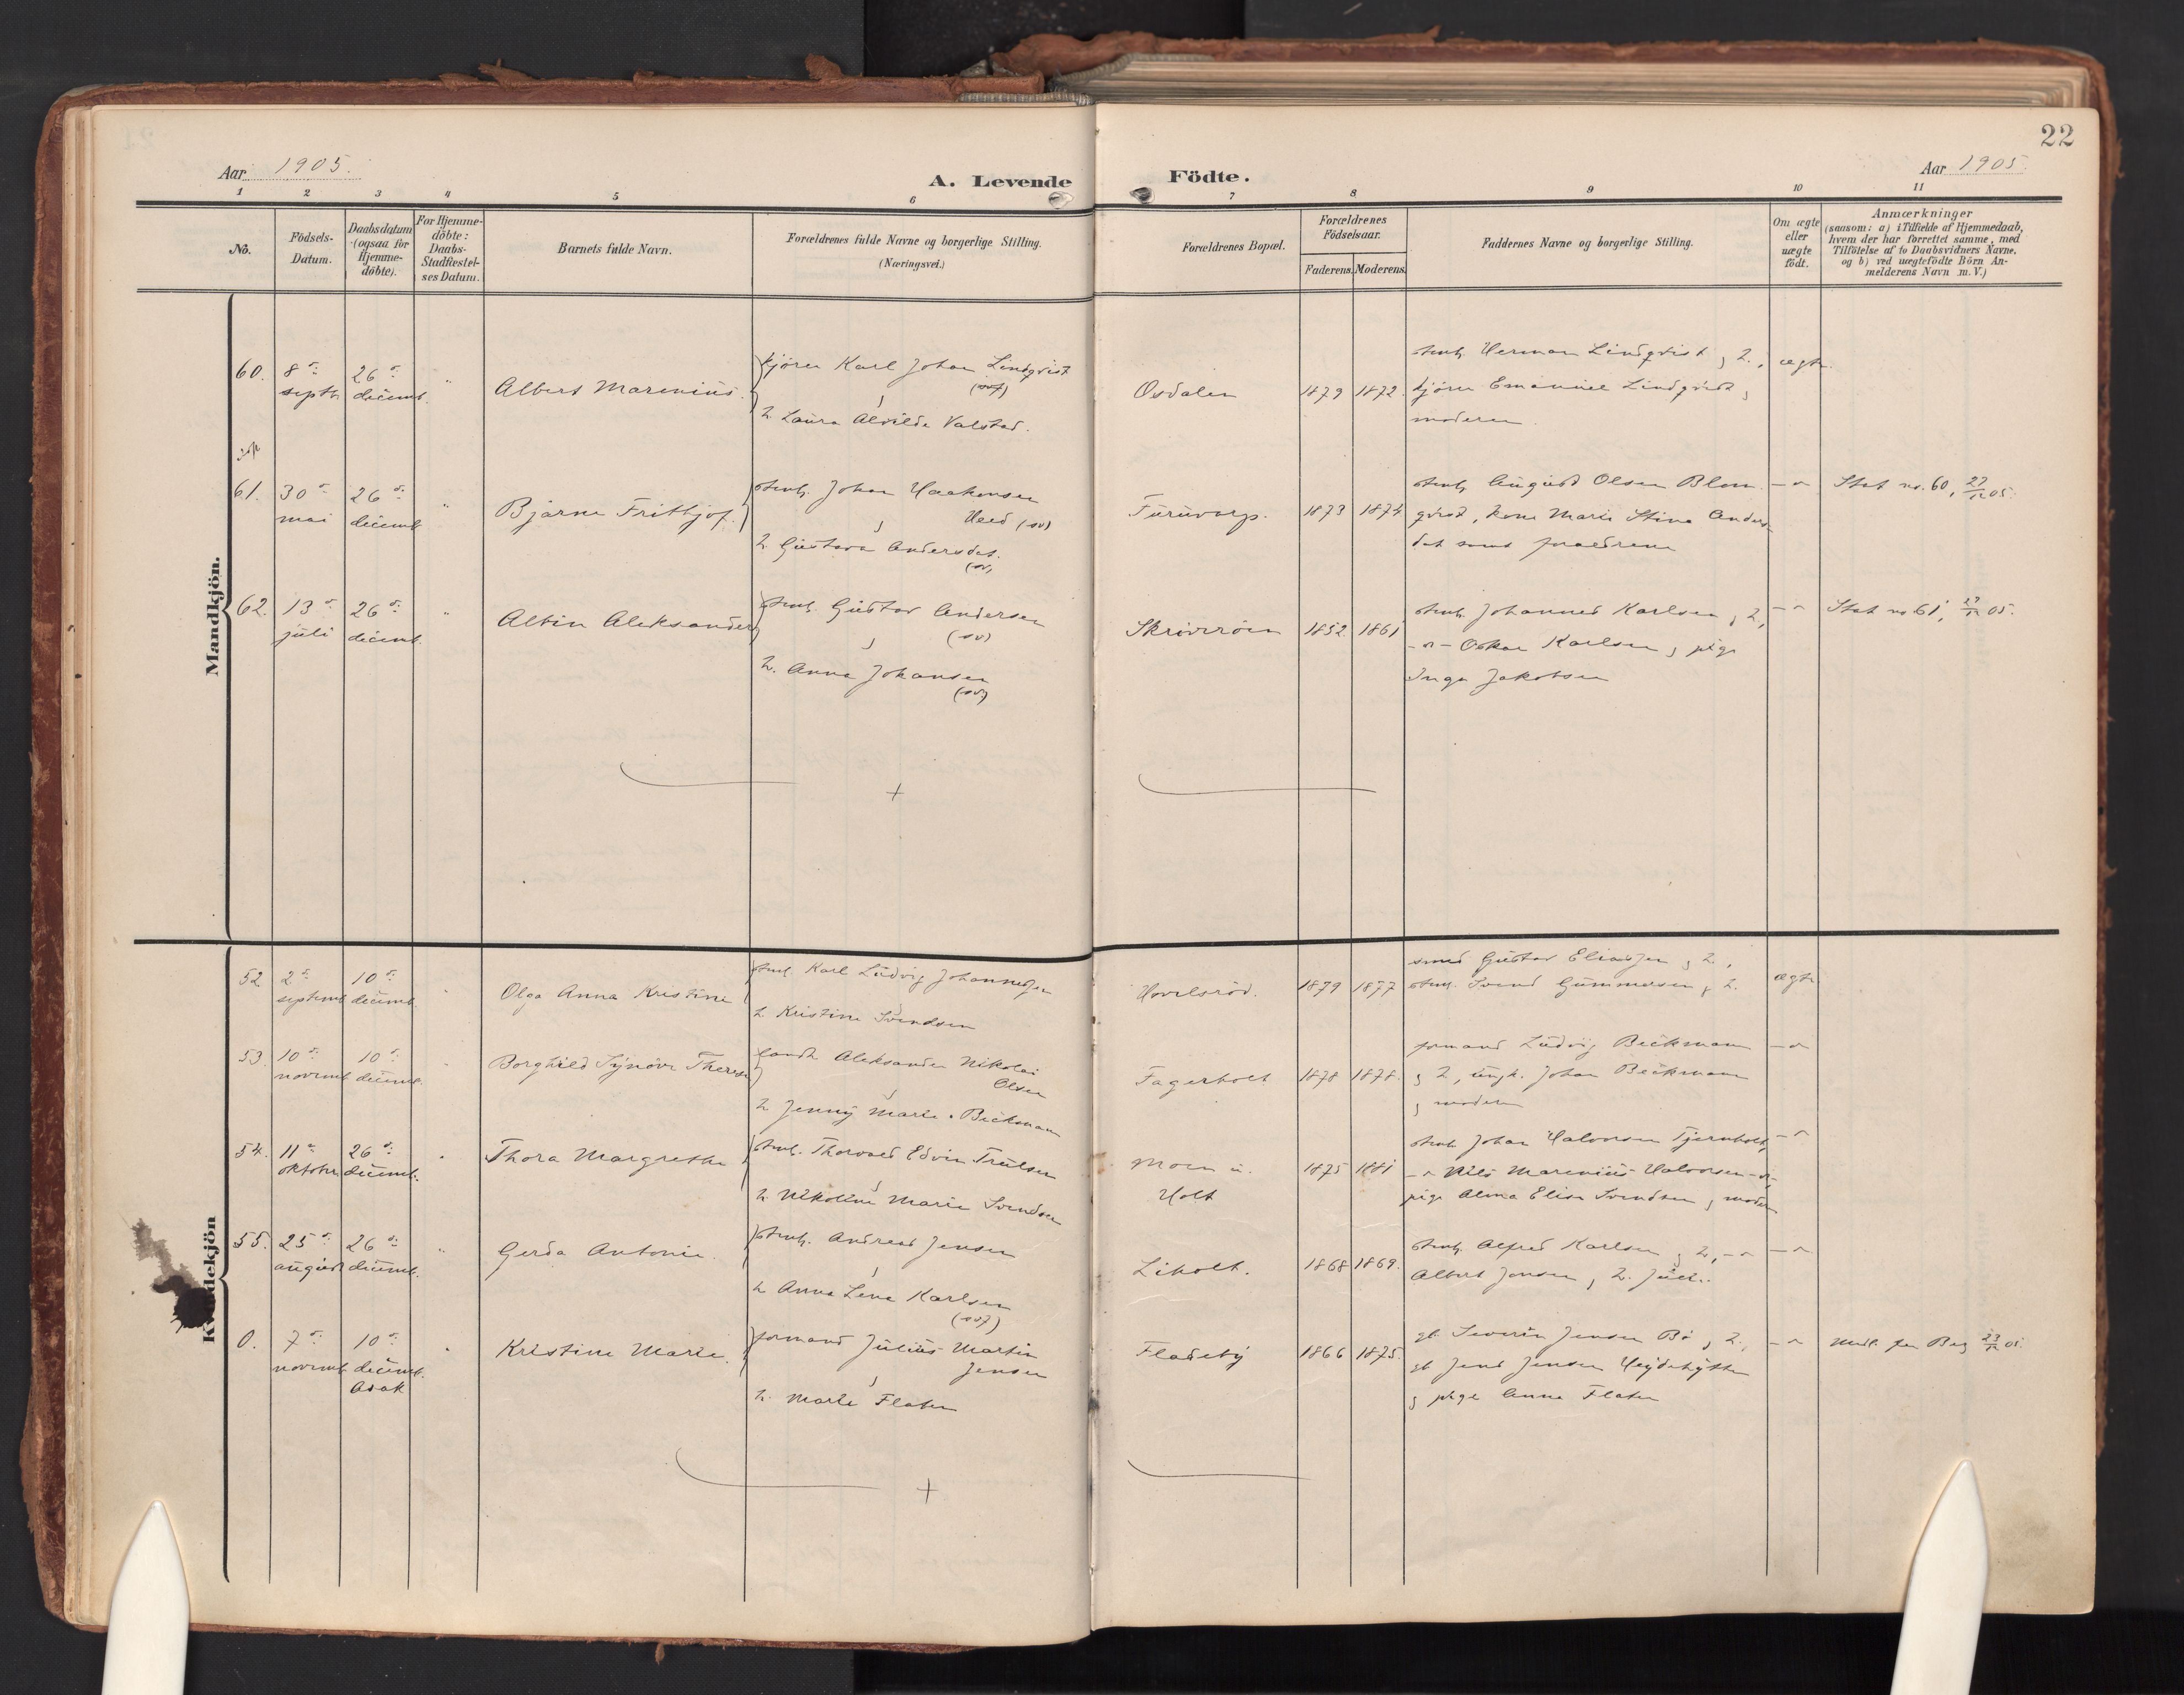 22
Aar 1905.
A. Levende
Födte.
Aar 1905.
1 2 3 4 5 6 7 8 9 10 11
No.
Födsels-
Datum.
Daabsdatum
(ogsaa for
Hjemme-
döbte).
For Hjemme-
döbte:
Daabs-
Stadfæstel-
ses Datum.
Barnets fulde Navn.
Forældrenes fulde Navne og borgerlige Stilling.
(Næringsvei.)
Forældrenes Bopæl.
Forældrenes
Födselsaar.
Faderens. Moderens.
Faddernes Navne og borgerlige Stilling.
Om ægte
eller
uægte
födt.
Anmærkninger
(saasom: a) i Tilfælde af Hjemmedaab,
hvem der har forrettet samme, med
Tilföielse af to Daabsvidners Navne.
og b) ved uægtefödte Börn An-
melderens Navn m. V.)
Mandkjön.
60. 8de septb. 26de decemb. " Albert Marenius. kjörer Karl Johan Lindqvist
(svf)
h. Laura Alvilde Valstad.
Osdalen 1879 1872.
Herman Lindqvist, h., ægte
kjörer Emanuel Lindqvist,
moderen.
61. 30de mai 26de decemb. " Bjarne Frithjof. Johan Haakensen
Heed (sv)
h. Gustava Andersdat.
(sv)
Furuvarp. 1873 1874.
August Olsen Blom-
qvist, kone Marie Stina Anders-
dat samt forældrene
Stat no. 60, 27/12 05.
62. 13de juli 26de decemb. " Albin Aleksander Gustav Andersen
(sv)
h. Anna Johansen
(sv)
1852 1861
Johannes Karlsen, h.,
-"- Oskar Karlsen, pige
Inga Jakobsen
Stat no 61, 27/12 05.
+
Kvindekjön
52 2de septemb. 10de decemb. Olga Anna Kristine Karl Ludvig Johannesen
h Kristine Svendsen
Hovelsröd. 1879 1877
smed Gustav Eliassen, h.,
Svend Gummesen, h. ægte
53. 10de novemb. 10de decemb. " Borghild Synöve Therese Aleksander Nikolai
Olsen
h Jenny Marie Beckmann
Fagerholt 1878 1878.
formand Ludvig Beckmann
, h, ungk. Johan Beckmann
, moderen
54. 11te oktober 26de decemb. " Thora Margrethe Thorvald Edvin Trulsen
h. Nikoline Marie Svendsen
Moen u.
Holt
1875 1881
Johan Halvorsen Tjernholt,
-"- Nils Marenius Halvorsen -"-,
pige Alma Elise Svendsen, moder
55. 25de august 26de decemb. " Gerda Antonie. Andreas Jensen
h Anna Lena Karlsen
(svf)
Liholt. 1868 1869.
Alfred Karlsen, h,
Albert Jensen, h.
0. 7de novemb. 10de decemb.
Asak
" Kristine Marie. formand Julius Martin
Jensen
h. Marie Flaten
Fladeby 1866 1875.
gb Severin Jensen Bö, h.,
gb Jens Jensen Heydehytten
, pige Anna Flaten
23/12 05.
+